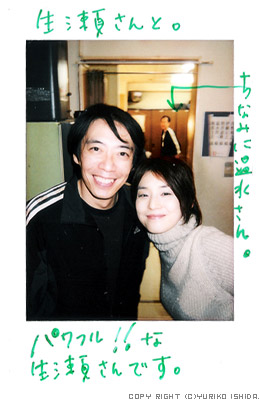 生瀬さんと。
ちなみに温水さん。
パワフル!!な
生瀬さんです。
COPY RIGHT (C)YURIKO ISHIDA.